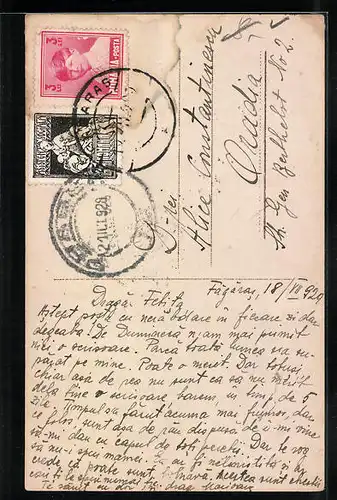 3 LEI 3
ROMANIA-POSTA
FĂGĂRAS
ORADEA
21 IUL 929
D-rei
Alice Constantinescu
Oradia
Str. Gen. Berthelot No 2.
Făgăraș, 18/VII 929
Dragă Fetița
Aștept poșta cu nerăbdare în fiecare zi dar
degeaba. De Duminecă n'am mai primit
nici o scrisoare. Parcă toată lumea s'a su-
părat pe mine. Poate o merit. Dar totuși
chiar așa de rea nu sunt ca să nu merit
dela tine o scrisoare barem, în timp de 5
zile. Timpul s'a făcut acuma mai frumos, dar
ce folos, sunt așa de rău dispusă de-mi vine
să-mi dau cu capul de toți pereții. Dar te rog
să nu-i spui mamei. Ea ar fi neliniștită și ar
crede că poate sunt
Te sărut cu dor